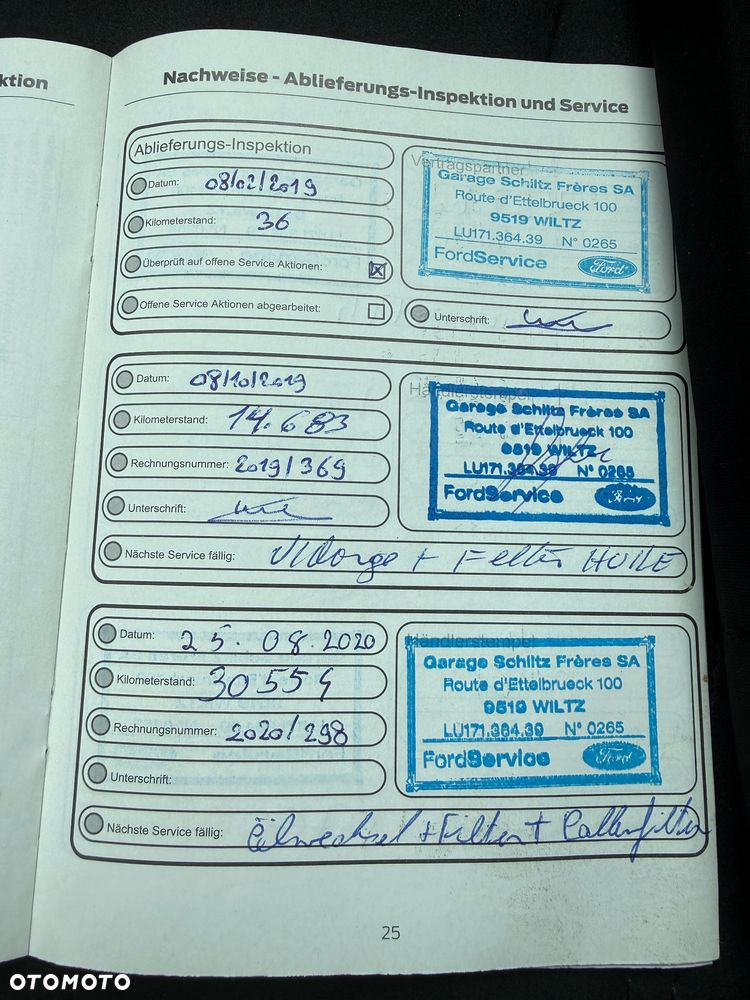 ktion
Nachweise - Ablieferungs-Inspektion und Service
Ablieferungs-Inspektion
Datum: 08/02/2019
Kilometerstand: 36
Überprüft auf offene Service Aktionen:
Offene Service Aktionen abgearbeitet:
Vertragspartner
Garage Schiltz Frères SA
Route d'Ettelbrueck 100
9519 WILTZ
LU171.364.39 N° 0265
FordService Ford
Unterschrift:
Datum: 08/10/2019
Kilometerstand: 14.683
Rechnungsnummer: 2019/369
Unterschrift:
Händlerstempel
Garage Schiltz Frères SA
Route d'Ettelbrueck 100
9519 WILTZ
LU171.364.39 N° 0265
FordService Ford
Nächste Service fällig: Vidange + Filter HUILE
Datum: 25.08.2020
Kilometerstand: 30554
Rechnungsnummer: 2020/298
Unterschrift:
Händlerstempel
Garage Schiltz Frères SA
Route d'Ettelbrueck 100
9519 WILTZ
LU171.364.39 N° 0265
FordService Ford
Nächste Service fällig: Ëlwechsel + Filter + Pollenfilter
25
OTOMOTO